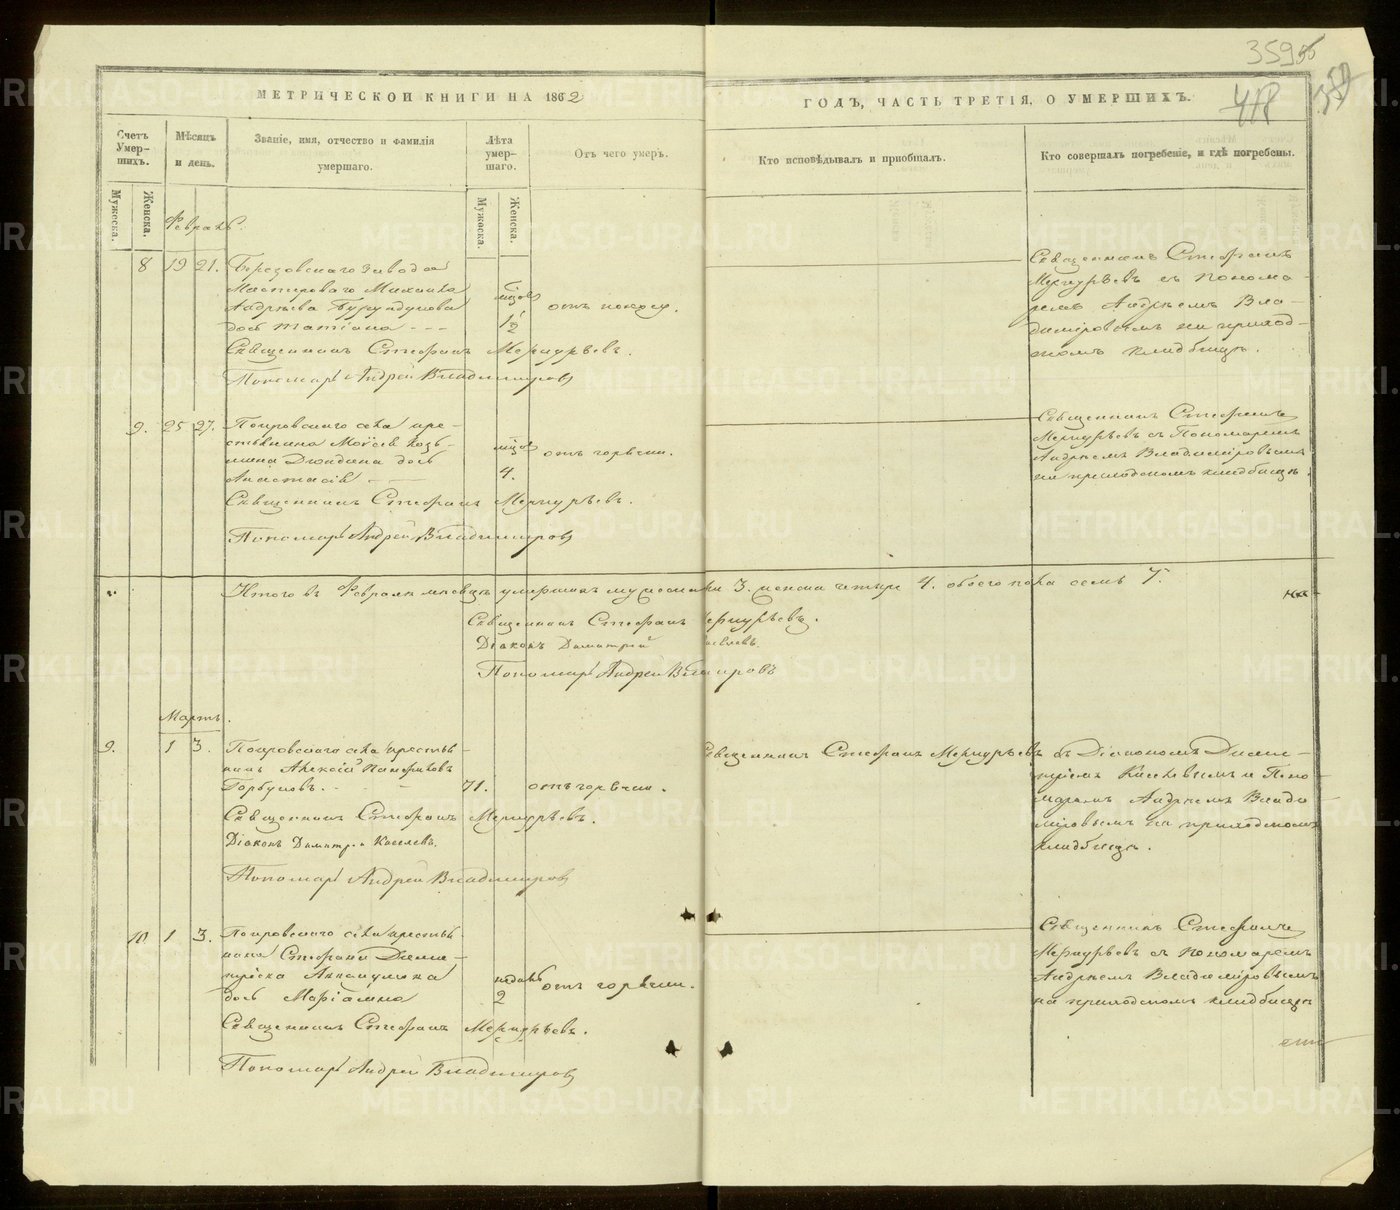 359
418
МЕТРИЧЕСКОЙ КНИГИ НА 1862
ГОДЪ, ЧАСТЬ ТРЕТІЯ, О УМЕРШИХЪ.
Счетъ Умер-шихъ.
Мѣсяцъ и день.
Званіе, имя, отчество и фамилія умершаго.
Лѣта умер-шаго.
Отъ чего умеръ.
Кто исповѣдывалъ и пріобщалъ.
Кто совершалъ погребеніе, и гдѣ погребены.
Мужеска.
Женска.
Мужеска.
Женска.
Февраль.
8 19 21. Березовскаго завода
Мастероваго Михаила
Андрѣева Бурундукова
дочь Татіана
1 1/2
Священникъ Стефанъ Меркурьевъ.
Пономарь Андрей Владимировъ
Священникъ Стефанъ
Меркурьевъ съ Понома-
ремъ Андрѣемъ Вла-
диміровымъ на приход-
скомъ кладбищѣ.
9. 25 27. Покровскаго села кре-
стьянина Моѵсея Козь-
мина дочь
Анастасія
4.
отъ горячки.
Священникъ Стефанъ Меркурьевъ.
Пономарь Андрей Владимировъ
Священникъ Стефанъ
Меркурьевъ съ Пономаремъ
Андрѣемъ Владиміровымъ
на приходскомъ кладбищѣ.
Итого въ Февралѣ мѣсяцѣ умершихъ мужеска 3. женска четыре 4. обоего пола семь 7.
Священникъ Стефанъ Меркурьевъ.
Діаконъ Димитрій Киселевъ.
Пономарь Андрей Владимировъ
Мартъ.
9. 1 3. Покровскаго села крестья-
нинъ Алексій Панфиловъ
Горбуновъ.
71. отъ горячки.
Священникъ Стефанъ Меркурьевъ.
Діаконъ Димитрій Киселевъ.
Пономарь Андрей Владимировъ
Священникъ Стефанъ Меркурьевъ съ Діакономъ Дими-
тріемъ Киселевымъ и Поно-
маремъ Андрѣемъ Влади
міровымъ на приходскомъ
кладбищѣ.
10 1 3. Покровскаго села крестья-
нина Стефана Дими-
тріева
дочь Маріамна
недѣль 2
отъ горячки.
Священникъ Стефанъ Меркурьевъ.
Пономарь Андрей Владимировъ
Священникъ Стефанъ
Меркурьевъ съ пономаремъ
Андрѣемъ Владиміровымъ
на приходскомъ кладбищѣ
METRIKI.GASO-URAL.RU